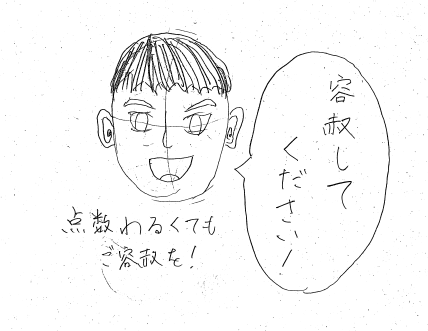 容赦して
ください!
点数わるくても
ご容赦を!